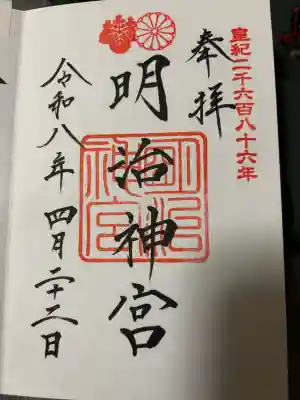 皇紀二千六百八十六年
奉拝
明治神宮
明治神宮
令和八年四月二十二日